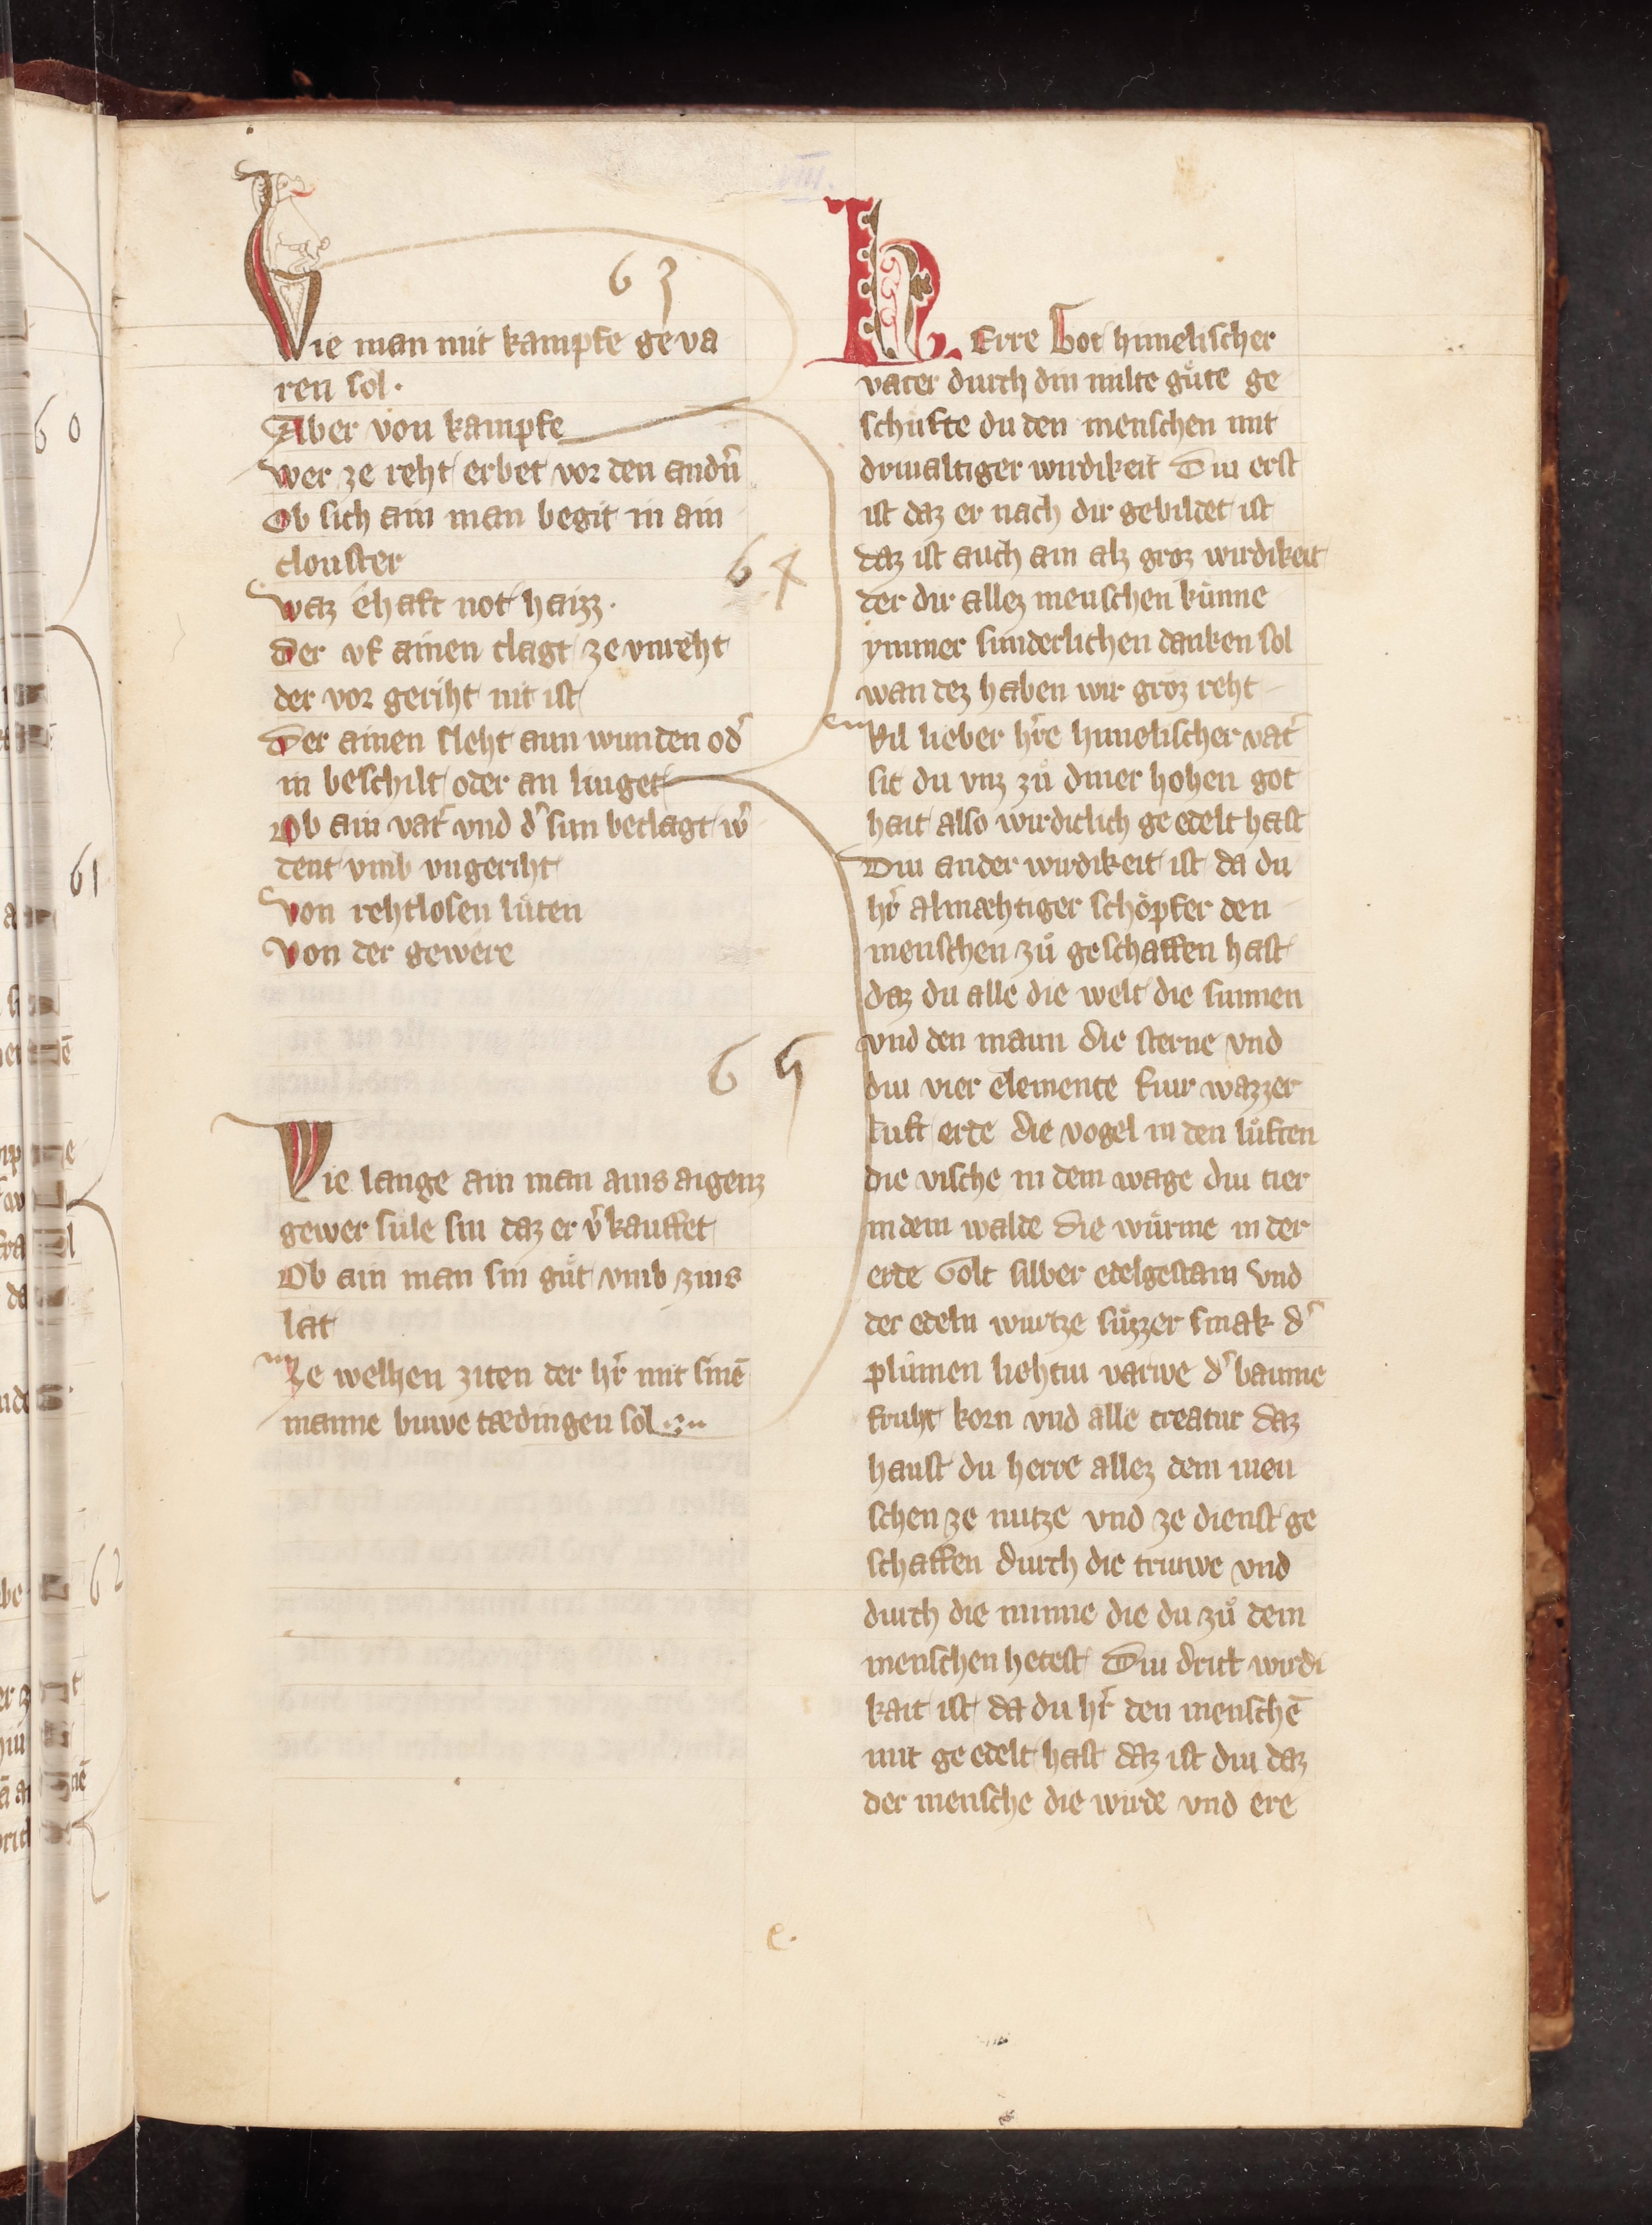 VIII.
63
Wie man mit kampfe ge va
ren sol.
Aber von kampfe
Wer ze reht erbet vor den andn̄
Ob sich ain man begit in ain
clouster
64
Waz ehaft not haizz.
Der vf ainen clagt ze vnreht
der vor geriht nit ist
Der ainen sleht aun wunden od᷑
in beschilt oder an liuget
Ob ain vat᷑ vnd d᷑ sun beclagt w᷑
dent vmb vngeriht
Von rehtlosen luͤten
Von der gewere
65
Wie lange ain man ains aigenz
gewer suͤle sin daz er v᷑kauffet
Ob ain man sin guͦt vmb zins
lat
Ze welhen ziten der hr᷑ mit sinē
manne buwe tædingen sol
HErre Got himelischer
vater durch din milte guͤte ge
schufte du den menschen mit
drivaltiger wirdikeit Diu erst
ist daz er nach dir gebildet ist
daz ist auch ain alz groz wirdikeit
der dir allez menschen kuͤnne
ymmer sunderlichen danken sol
wan dez haben wir groz reht
Vil lieber hr᷑e himelischer vat᷑
sit du vnz zuͦ diner hohen got
hait also wirdiclich ge edelt hast
Diu ander wirdikeit ist da du
hr᷑ almæhtiger schoͤpfer den
menschen zuͦ geschaffen hast
daz du alle die welt die sunnen
vnd den maun die sterne vnd
diu vier elemente fiur wazzer
luft erde die vogel in den luͤften
die vische in dem wage diu tier
in dem walde die wuͤrme in der
erde Golt silber edelgestain vnd
der edeln wurtze suͤzzer smak d᷑
pluͦmen liehtiu varwe d᷑ baume
fruht korn vnd alle creatur daz
haust du herre allez dem men
schen ze nutze vnd ze dienst ge
schaffen durch die triuwe vnd
durch die minne die du zuͦ dem
menschen hetest Diu drit wirdi
kait ist da du hr᷑ den menschē
mit ge edelt hast daz ist diu daz
der mensche die wirde vnd ere
e.